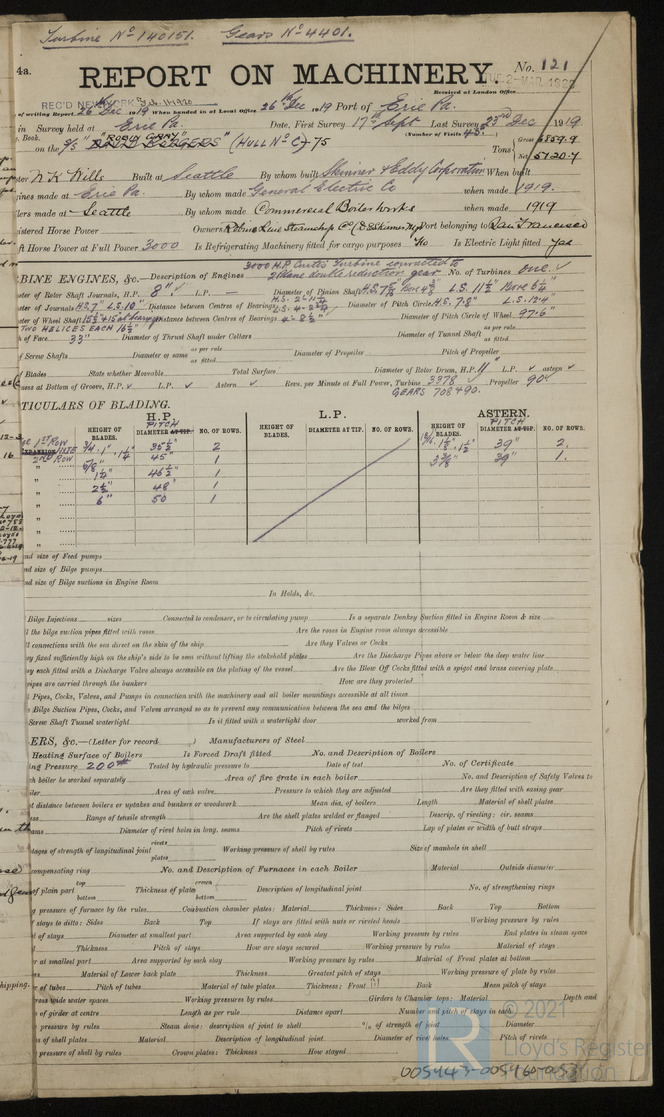 Turbine No 140151. Gears No 4401.
4a.
REPORT ON MACHINERY.
No. 121
Received at London Office
TUE. 2-MAR. 1920
REC'D NEW YORK Feb. 11 1920
of writing Report 26th Dec 1919 When handed in at Local Office 26th Dec 1919 Port of Erie Pa.
in Survey held at Erie Pa. Date, First Survey 17th Sept Last Survey 23rd Dec 1919
Book. (Number of Visits 43)
on the S/S (HULL No C)-75
Tons Gross 6859.9
Net 5120.7
W K Wills Built at Seattle By whom built Skinner & Eddy Corporation When built
gines made at Erie Pa. By whom made General Electric Co when made 1919.
lers made at Seattle By whom made Commercial Boiler Works when made 1919
istered Horse Power Owners Port belonging to San Francisco
ft Horse Power at Full Power 3000 Is Refrigerating Machinery fitted for cargo purposes No Is Electric Light fitted Yes
BINE ENGINES, &c.—Description of Engines 3000 H.P. Curtis Turbine connected to 2 Plane double reduction gear No. of Turbines one.
ter of Rotor Shaft Journals, H.P. 8" L.P. — Diameter of Pinion Shaft
ter of Journals Distance between Centres of Bearings Diameter of Pitch Circle H.S. 7.8" L.S. 12.4"
ter of Wheel Shaft Distance between Centres of Bearings Diameter of Pitch Circle of Wheel 97.6"
TWO HELICES EACH 16½"
h of Face 33" Diameter of Thrust Shaft under Collars Diameter of Tunnel Shaft as per rule as fitted
of Screw Shafts Diameter of same as per rule as fitted Diameter of Propeller Pitch of Propeller
of Blades State whether Moveable Total Surface Diameter of Rotor Drum, H.P. L.P. astern
ness at Bottom of Groove, H.P. L.P. Astern Revs. per Minute at Full Power, Turbine 3378 Propeller 90
GEARS 708 & 90.
TICULARS OF BLADING.
H.P. L.P. ASTERN.
HEIGHT OF BLADES. PITCH DIAMETER AT TIP. NO. OF ROWS. HEIGHT OF BLADES. DIAMETER AT TIP. NO. OF ROWS. HEIGHT OF BLADES. PITCH DIAMETER AT TIP. NO. OF ROWS.
1ST ROW 35½" 2 39" 2.
2ND ROW 45" 1 39" 1.
1½" 46½" 1
2½" 48 1
6" 50 1
nd size of Feed pumps
nd size of Bilge pumps
nd size of Bilge suctions in Engine Room
In Holds, &c.
Bilge Injections sizes Connected to condenser, or to circulating pump Is a separate Donkey Suction fitted in Engine Room & size
ll the bilge suction pipes fitted with roses Are the roses in Engine room always accessible
l connections with the sea direct on the skin of the ship Are they Valves or Cocks
ey fixed sufficiently high on the ship's side to be seen without lifting the stokehold plates Are the Discharge Pipes above or below the deep water line
ey each fitted with a Discharge Valve always accessible on the plating of the vessel Are the Blow Off Cocks fitted with a spigot and brass covering plate
ipes are carried through the bunkers How are they protected
l Pipes, Cocks, Valves, and Pumps in connection with the machinery and all boiler mountings accessible at all times
e Bilge Suction Pipes, Cocks, and Valves arranged so as to prevent any communication between the sea and the bilges
Screw Shaft Tunnel watertight Is it fitted with a watertight door worked from
ERS, &c.—(Letter for record ) Manufacturers of Steel
Heating Surface of Boilers Is Forced Draft fitted No. and Description of Boilers
ing Pressure 200# Tested by hydraulic pressure to Date of test No. of Certificate
h boiler be worked separately Area of fire grate in each boiler No. and Description of Safety Valves to
iler Area of each valve Pressure to which they are adjusted Are they fitted with easing gear
st distance between boilers or uptakes and bunkers or woodwork Mean dia. of boilers Length Material of shell plates
ess Range of tensile strength Are the shell plates welded or flanged Descrip. of riveting: cir. seams
ams Diameter of rivet holes in long. seams Pitch of rivets Lap of plates or width of butt straps
tages of strength of longitudinal joint rivets plates Working pressure of shell by rules Size of manhole in shell
compensating ring No. and Description of Furnaces in each Boiler Material Outside diameter
of plain part top bottom Thickness of plates crown bottom Description of longitudinal joint No. of strengthening rings
g pressure of furnace by the rules Combustion chamber plates: Material Thickness: Sides Back Top Bottom
f stays to ditto: Sides Back Top If stays are fitted with nuts or riveted heads Working pressure by rules
of stays Diameter at smallest part Area supported by each stay Working pressure by rules End plates in steam space
Thickness Pitch of stays How are stays secured Working pressure by rules Material of stays
er at smallest part Area supported by each stay Working pressure by rules Material of Front plates at bottom
ss Material of Lower back plate Thickness Greatest pitch of stays Working pressure of plate by rules
er of tubes Pitch of tubes Material of tube plates Thickness: Front Back Mean pitch of stays
ross wide water spaces Working pressures by rules Girders to Chamber tops: Material Depth and
ss of girder at centre Length as per rule Distance apart Number and pitch of stays in each
g pressure by rules Steam dome: description of joint to shell % of strength of joint Diameter
ss of shell plates Material Description of longitudinal joint Diameter of rivet holes Pitch of rivets
g pressure of shell by rules Crown plates: Thickness How stayed
© 2021
Lloyd's Register
Foundation
005443-005460-0053